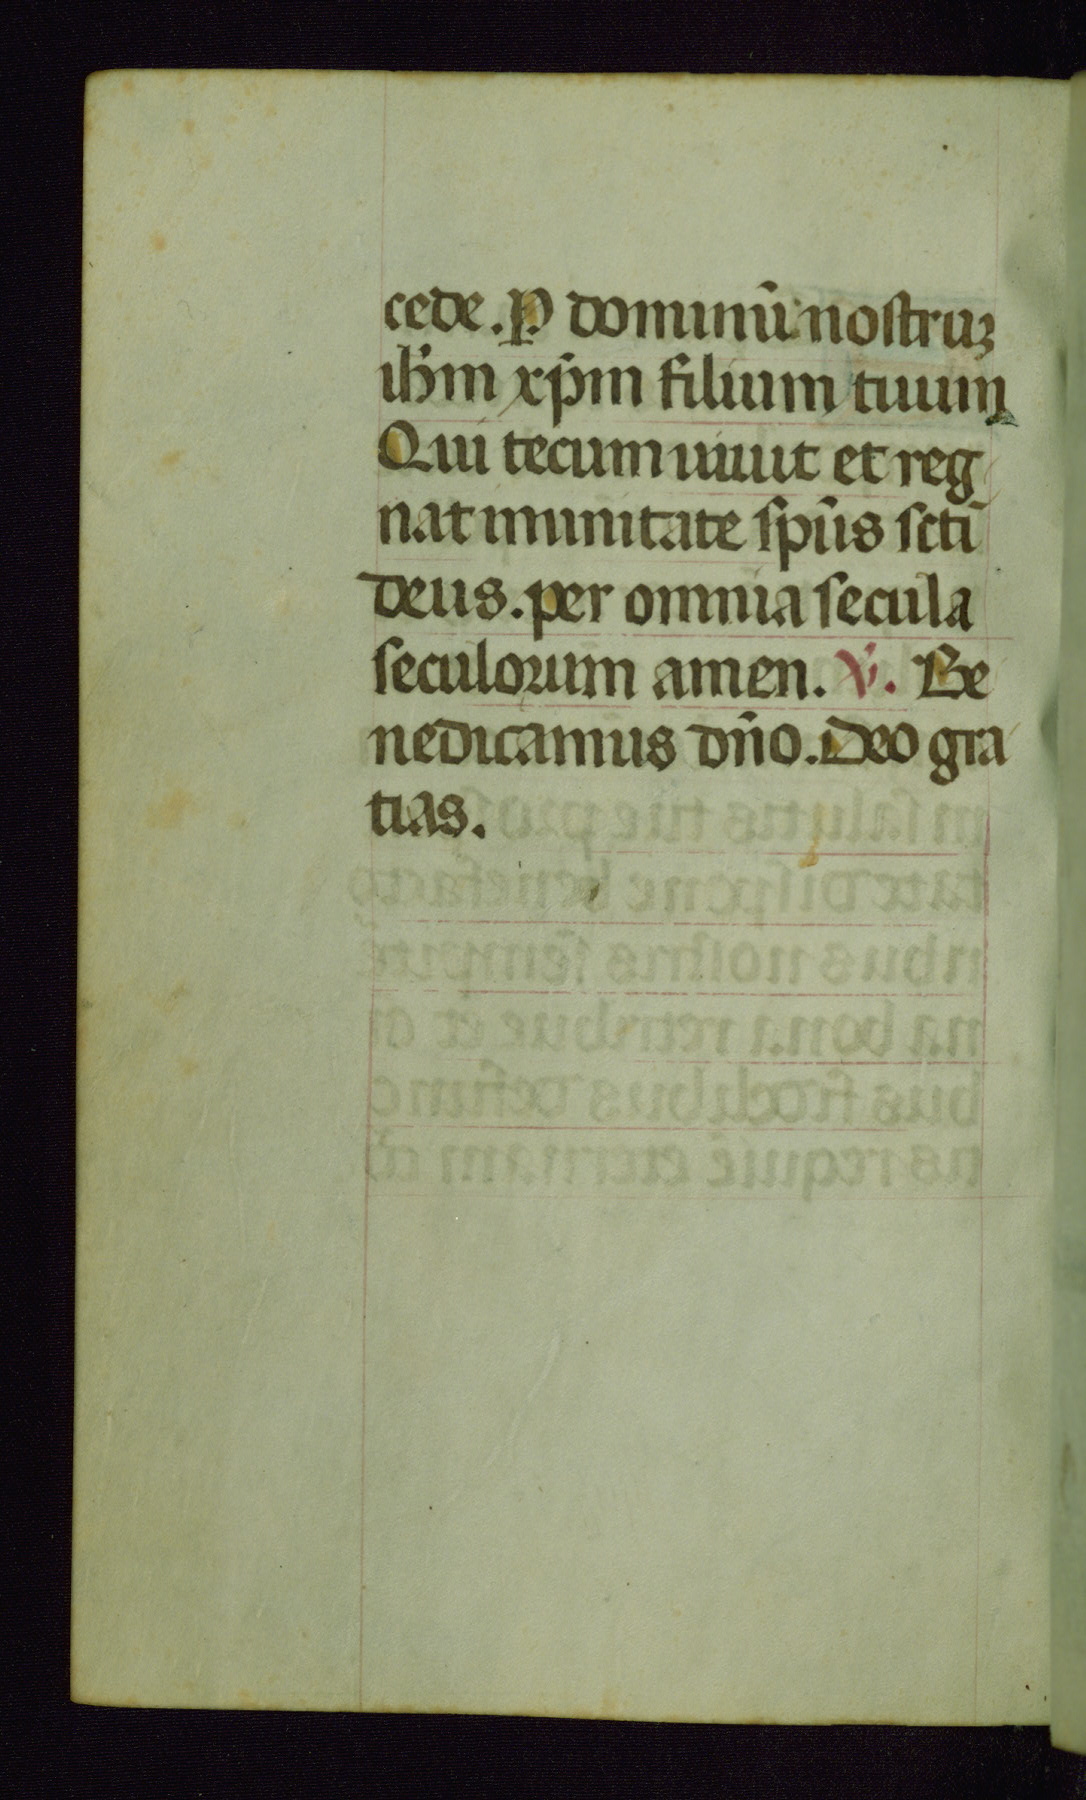 cede. P dominū nostruꝫ
ihm̄ xp̄m filium tuum
Qui tecum uiuit et reg
nat inunitate sp̄us scti
deus. per omnia secula
seculorum amen. ℣. Be
nedicamus dn̄o. Deo gra
tias.